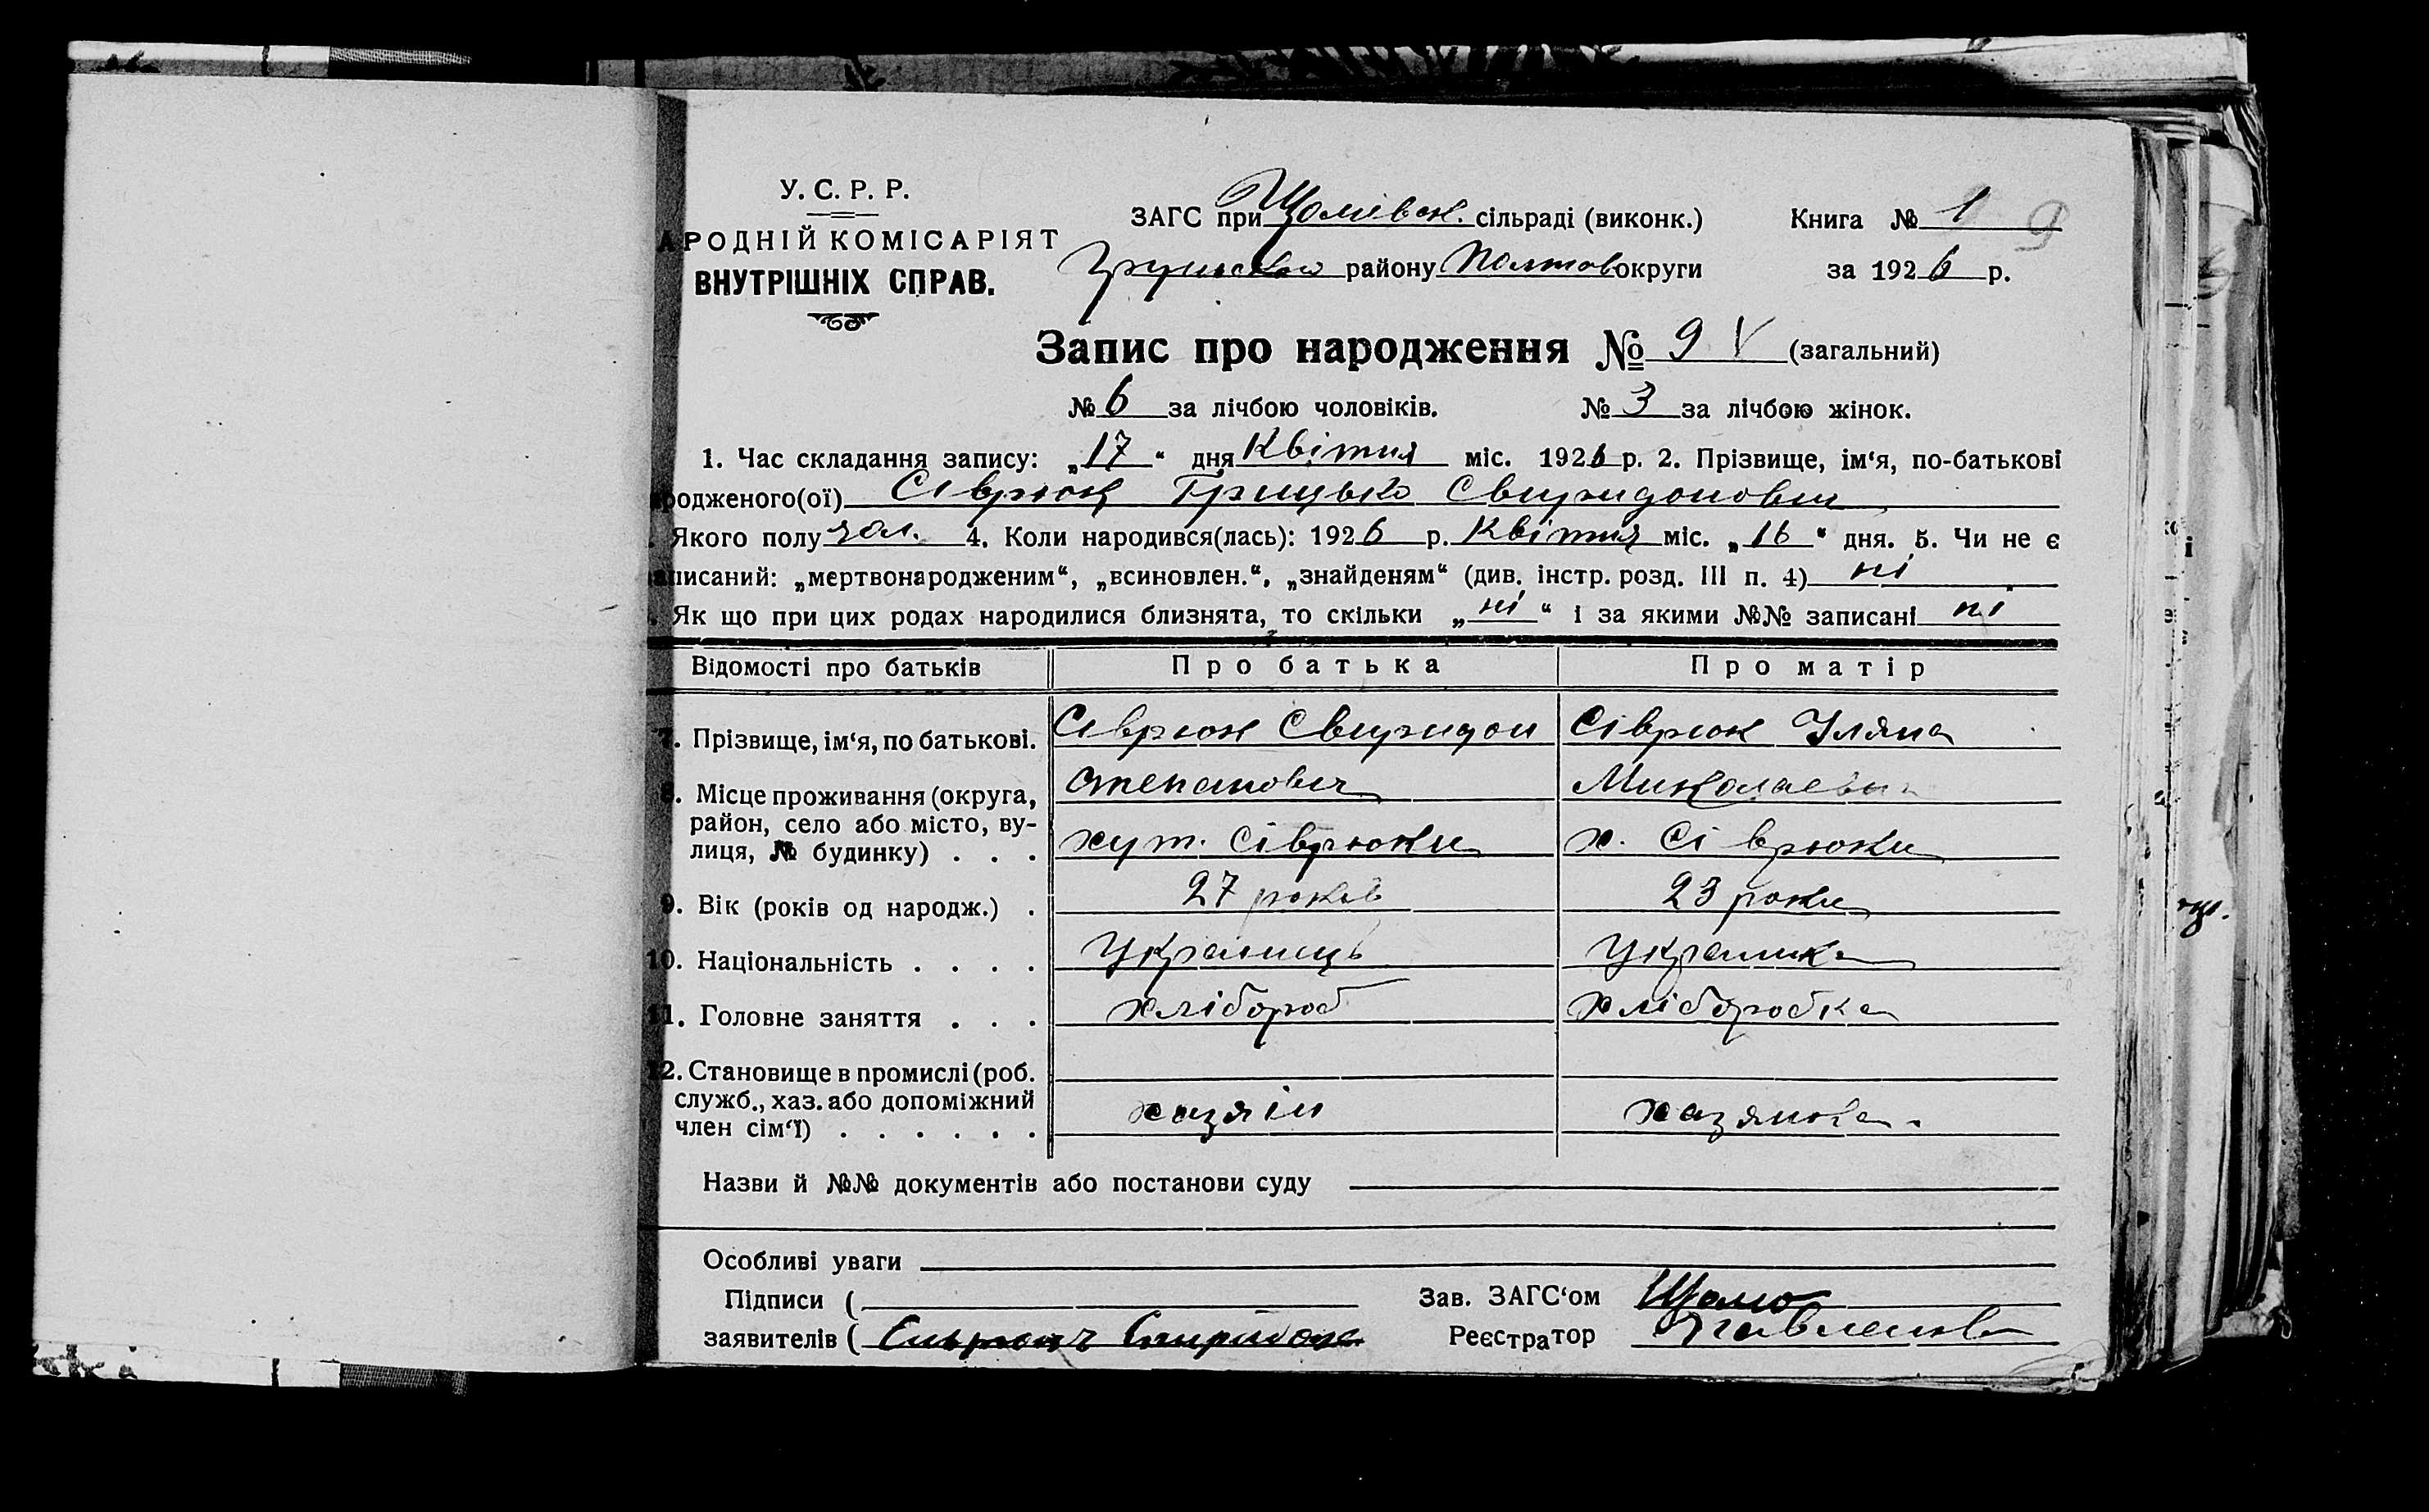 У. С. Р. Р.
АРОДНІЙ КОМІСАРІЯТ
ВНУТРІШНІХ СПРАВ.
ЗАГС при сільраді (виконк.)
району Полтав округи
Книга № 1 9
за 1926 р.
Запис про народження № 9 V (загальний)
№ 6 за лічбою чоловіків. № 3 за лічбою жінок.
1. Час складання запису: „17“ дня Квітня міс. 1926 р. 2. Прізвище, ім‘я, по-батькові
родженого(ої) Сіврюк Грицько Свиридонович
Якого полу чол. 4. Коли народився(лась): 1926 р. Квітня міс. „16“ дня. 5. Чи не є
аписаний: „мертвонародженим“, „всиновлен.“, „знайденям“ (див. інстр. розд. III п. 4) ні
Як що при цих родах народилися близнята, то скільки „ні“ і за якими №№ записані ні
Відомості про батьків Про батька Про матір
7. Прізвище, ім‘я, по батькові. Сіврюк Свиридон Сіврюк Уляна
Степанович Миколаевн
8. Місце проживання (округа,
район, село або місто, ву-
лиця, № будинку) . . . хут. Сіврюки х. Сіврюки
9. Вік (років од народж.) . 27 років 23 роки
10. Національність . . . . Українець Українка
11. Головне заняття . . . хлібороб хліборобка
12. Становище в промислі (роб.
служб., хаз. або допоміжний
член сім‘ї) . . . . . . хазяїн хазяйка.
Назви й №№ документів або постанови суду
Особливі уваги
Підписи (
заявителів (
Зав. ЗАГС‘ом
Реєстратор